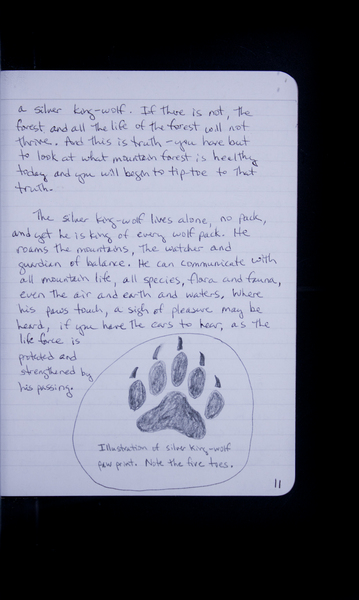 a silver king-wolf. If there is not, the
forest and all the life of the forest will not
thrive. And this is truth - you have but
to look at what mountain forest is healthy
today and you will begin to tip-toe to that
truth.
The silver king-wolf lives alone, no pack,
and yet he is king of every wolf pack. He
roams the mountains, the watcher and
guardian of balance. He can communicate with
all mountain life, all species, flora and fauna,
even the air and earth and waters. Where
his paws touch, a sigh of pleasure may be
heard, if you have the ears to hear, as the
life force is
protected and
strengthened by
his passing.
Illustration of silver king-wolf
paw print. Note the five toes.
11